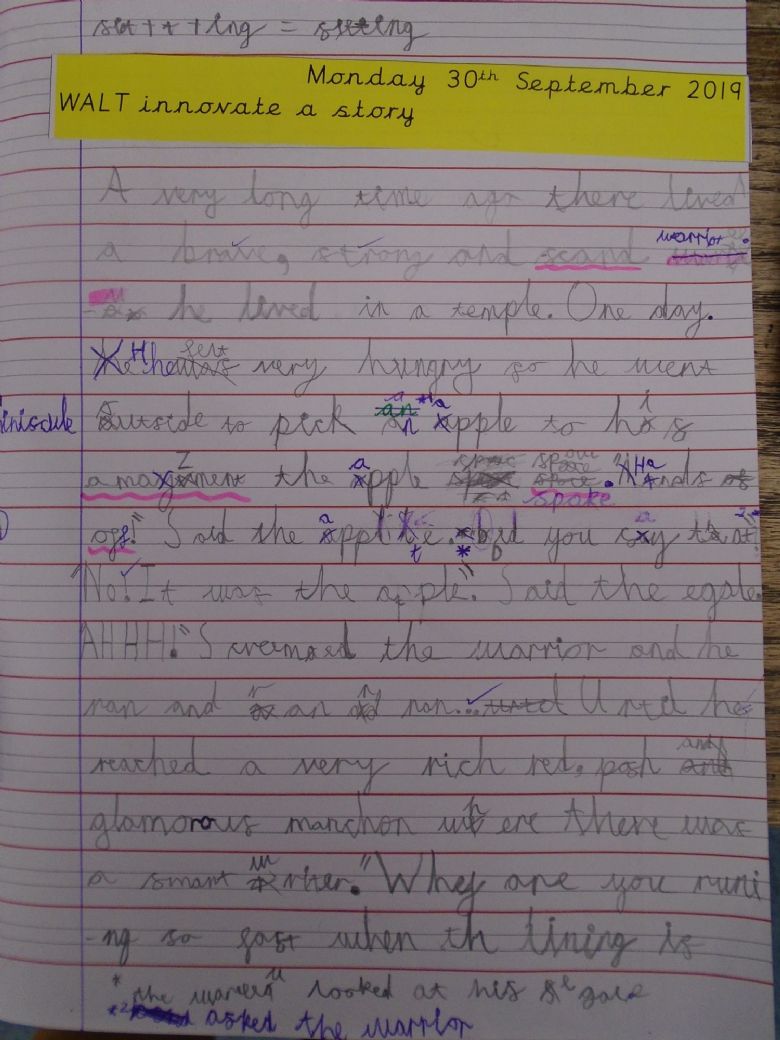 sit + t + ing = sitting
Monday 30th September 2019
WALT innovate a story
A very long time ago there lived
a brave, strong and scard warrior.
he lived in a temple. One day.
He felt very hungry so he went
iniscule outside to pick an apple to his
amazment the apple spoke. "Hands
off!" Said the apple. *did you say that *2
"No! It was the apple." Said the egale.
AHHH!" Screamed the warrior and he
ran and ran and ran... Until he
reached a very rich red, posh and
glamorous manchon where there was
a smart writer. "Why are you runi
-ng so fast when th lining is
* the warrior looked at his egale
*2 asked the warrior